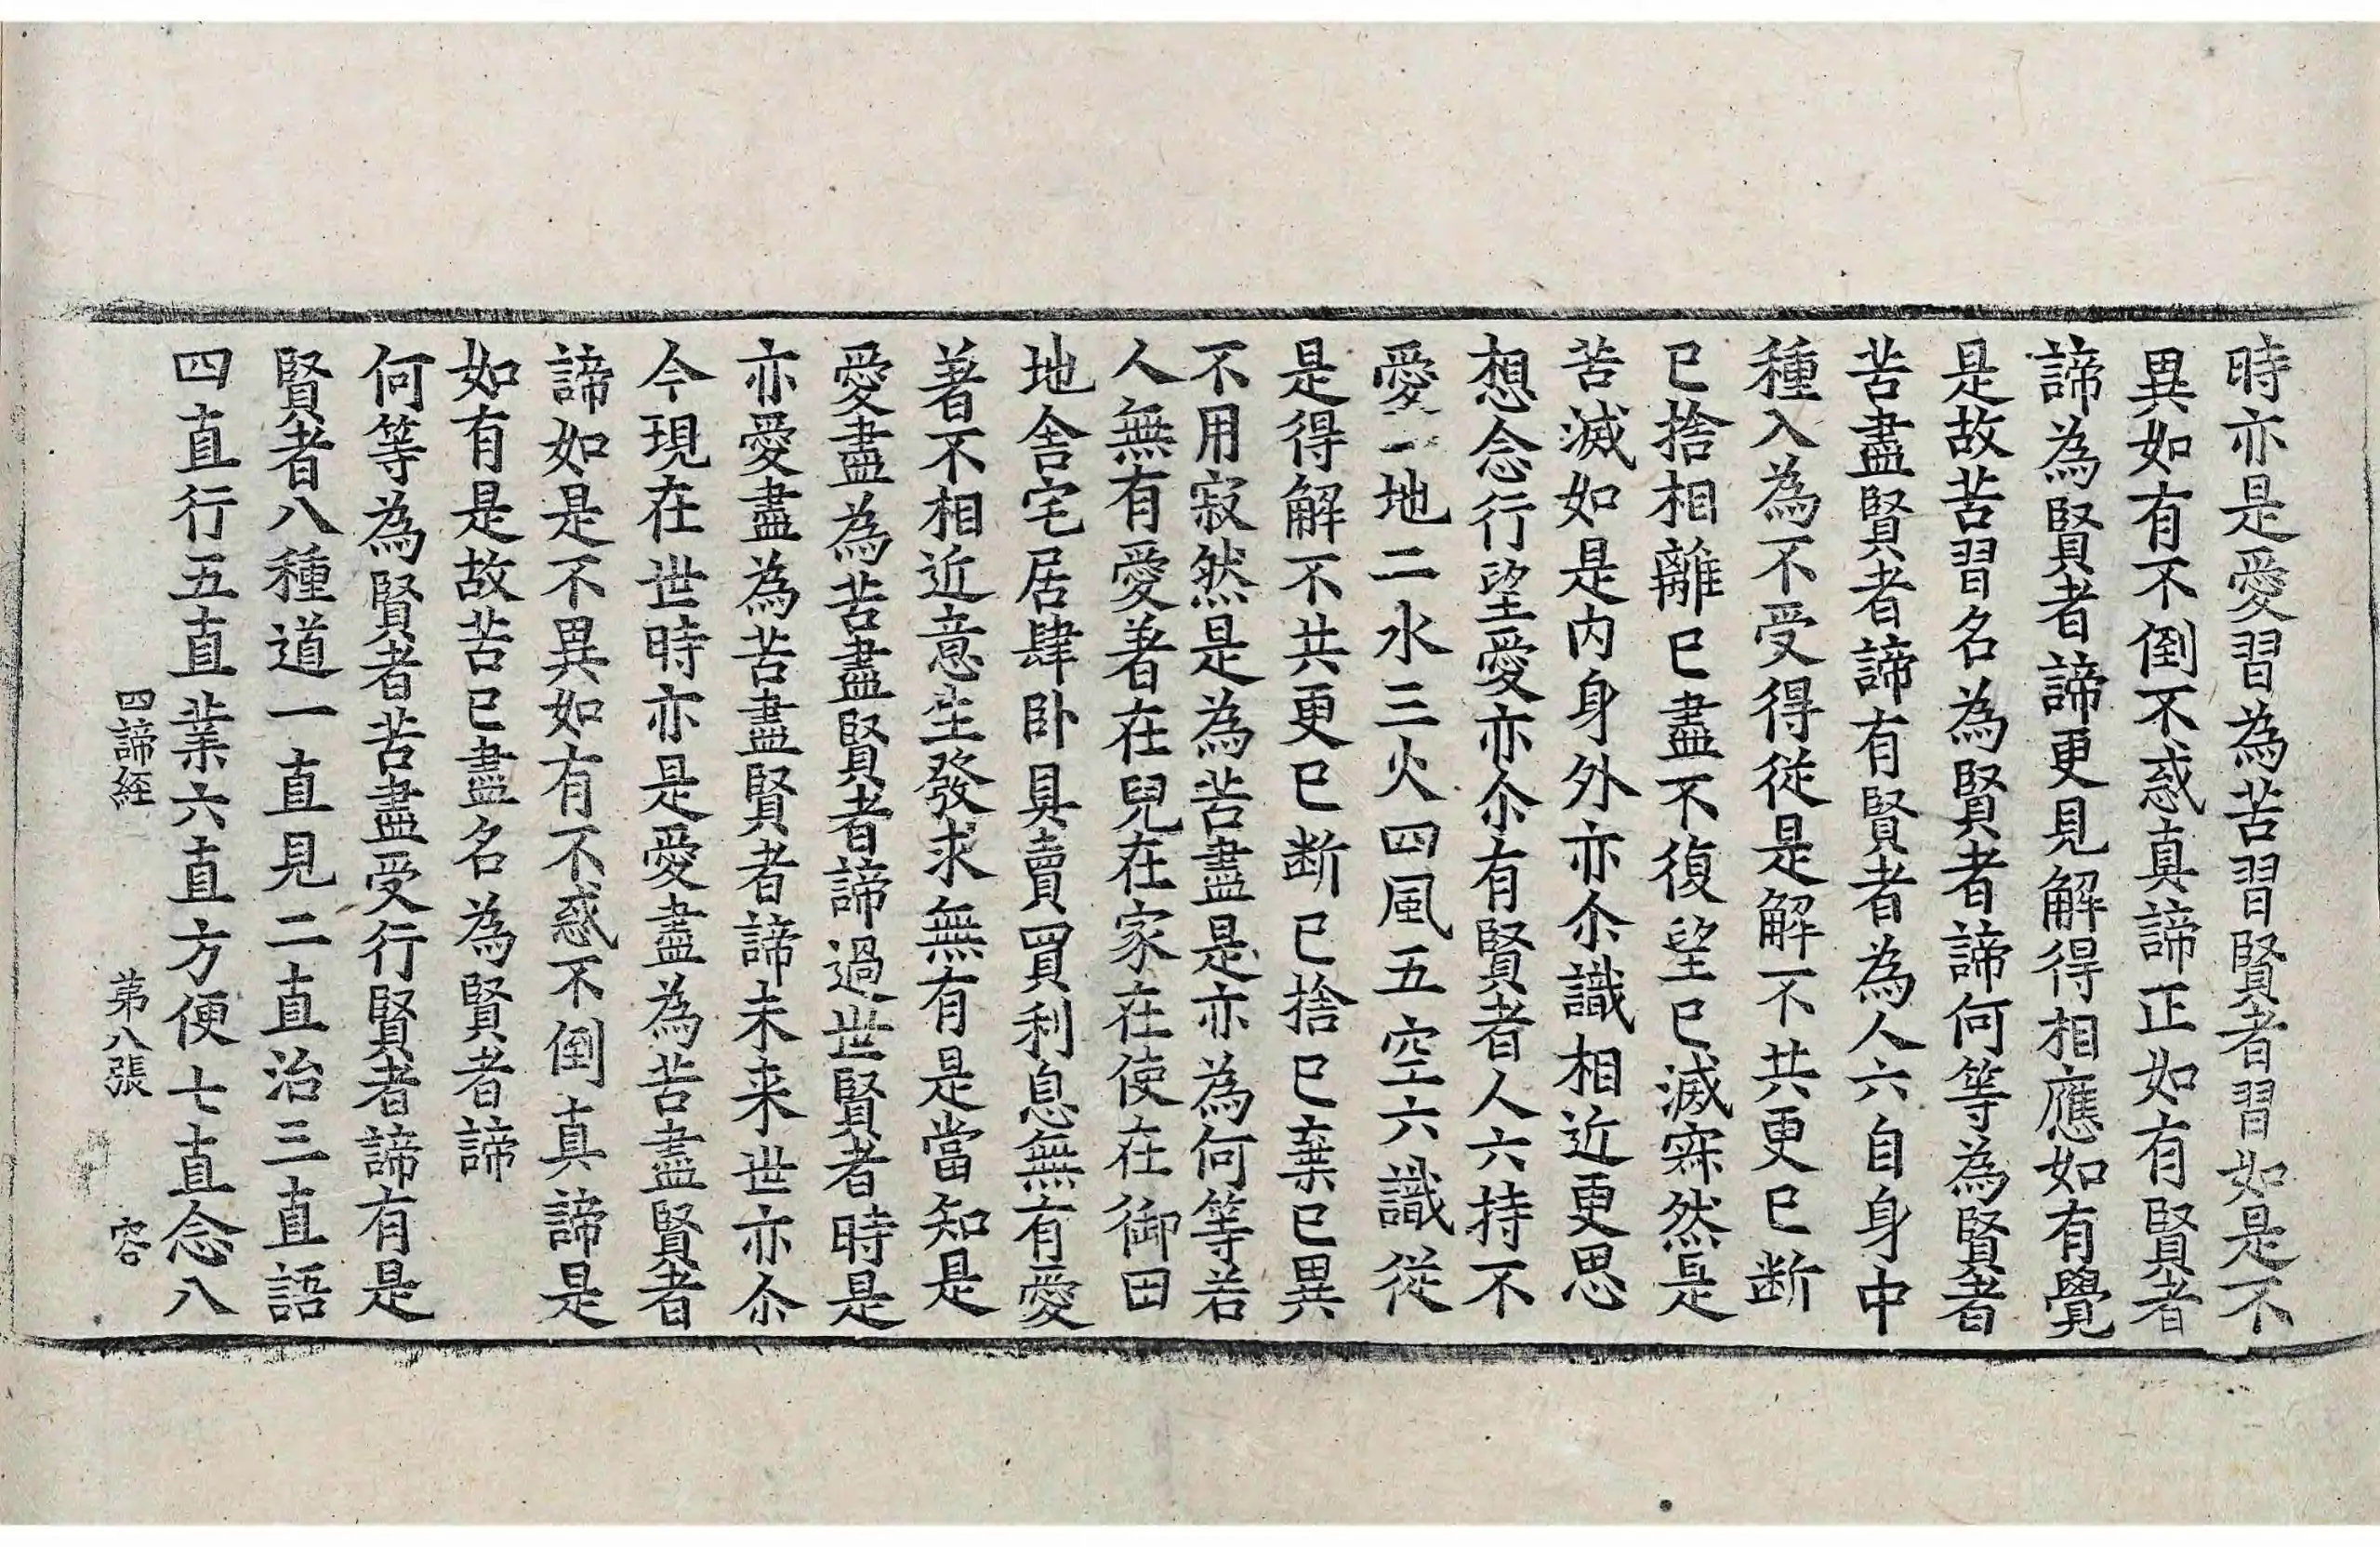 時亦是愛習為苦習賢者習如是不
異如有不倒不惑真諦正如有賢者
諦為賢者諦更見解得相應如有覺
是故苦習名為賢者諦何等為賢者
苦盡賢者諦有賢者為人六自身中
種入為不受得從是解不共更已斷
已捨相離已盡不復望已滅寂然是
苦滅如是內身外亦尒識相近更思
想念行望愛亦尒有賢者人六持不
愛一地二水三火四風五空六識從
是得解不共更已断已捨已棄已異
不用寂然是為苦盡是亦為何等若
人無有愛著在兒在家在使在御田
地舍宅居肆卧具賣買利息無有愛
著不相近意生發求無有是當知是
愛盡為苦盡賢者諦過世賢者時是
亦愛盡為苦盡賢者諦未来世亦尒
今現在世時亦是愛盡為苦盡賢者
諦如是不異如有不惑不倒真諦是
如有是故苦已盡名為賢者諦
何等為賢者苦盡受行賢者諦有是
賢者八種道一直見二直治三直語
四直行五直業六直方便七直念八
四諦經 苐八張 容